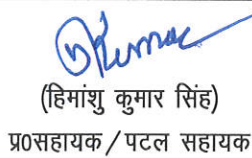 Kumar
(हिमांशु कुमार सिंह)
प्र०सहायक / पटल सहायक